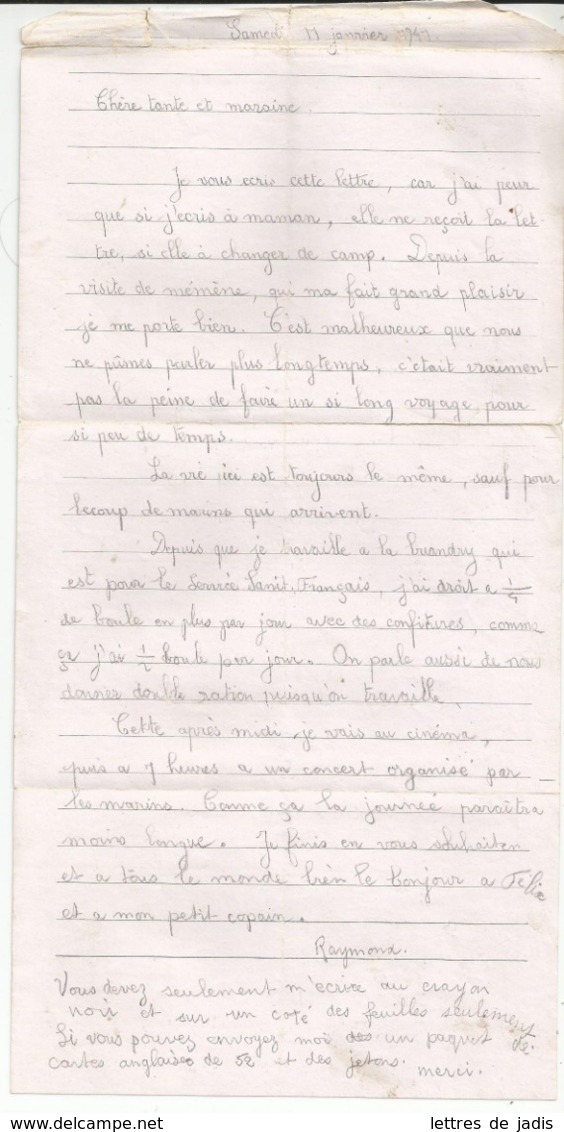 Samedi 11 janvier 1941.
Chère tante et maraine.
Je vous ecris cette lettre, car j'ai peur
que si j'ecris à maman, elle ne reçoit la let-
tre, si elle à changer de camp. Depuis la
visite de mémène, qui ma fait grand plaisir
je me porte bien. C'est malheureux que nous
ne pûmes parler plus longtemps, c'était vraiment
pas la peine de faire un si long voyage pour
si peu de temps.
La vie ici est toujours le même, sauf pour
becoup de marins qui arrivent.
Depuis que je travaille a la buandry qui
est pour le Service Sanit. Français, j'ai droit a 1/4
de boule en plus par jour avec des confitures, comme
ça j'ai 1/2 boule par jour. On parle aussi de nous
donner double ration puisqu'on travaille.
Cette après midi je vais au cinéma,
puis a 7 heures a un concert organisé par
les marins. Comme ça la journeé paraîtra
moins longue. Je finis en vous souhaiten
et a tous le monde bien le bonjour a Félix
et a mon petit copain.
Raymond.
Vous devez seulement m'ecrire au crayon
noir et sur un coté des feuilles seulement
Si vous pouvez envoyez moi un paquet de
cartes anglaises de 52 et des jetons. merci.
lettres de jadis